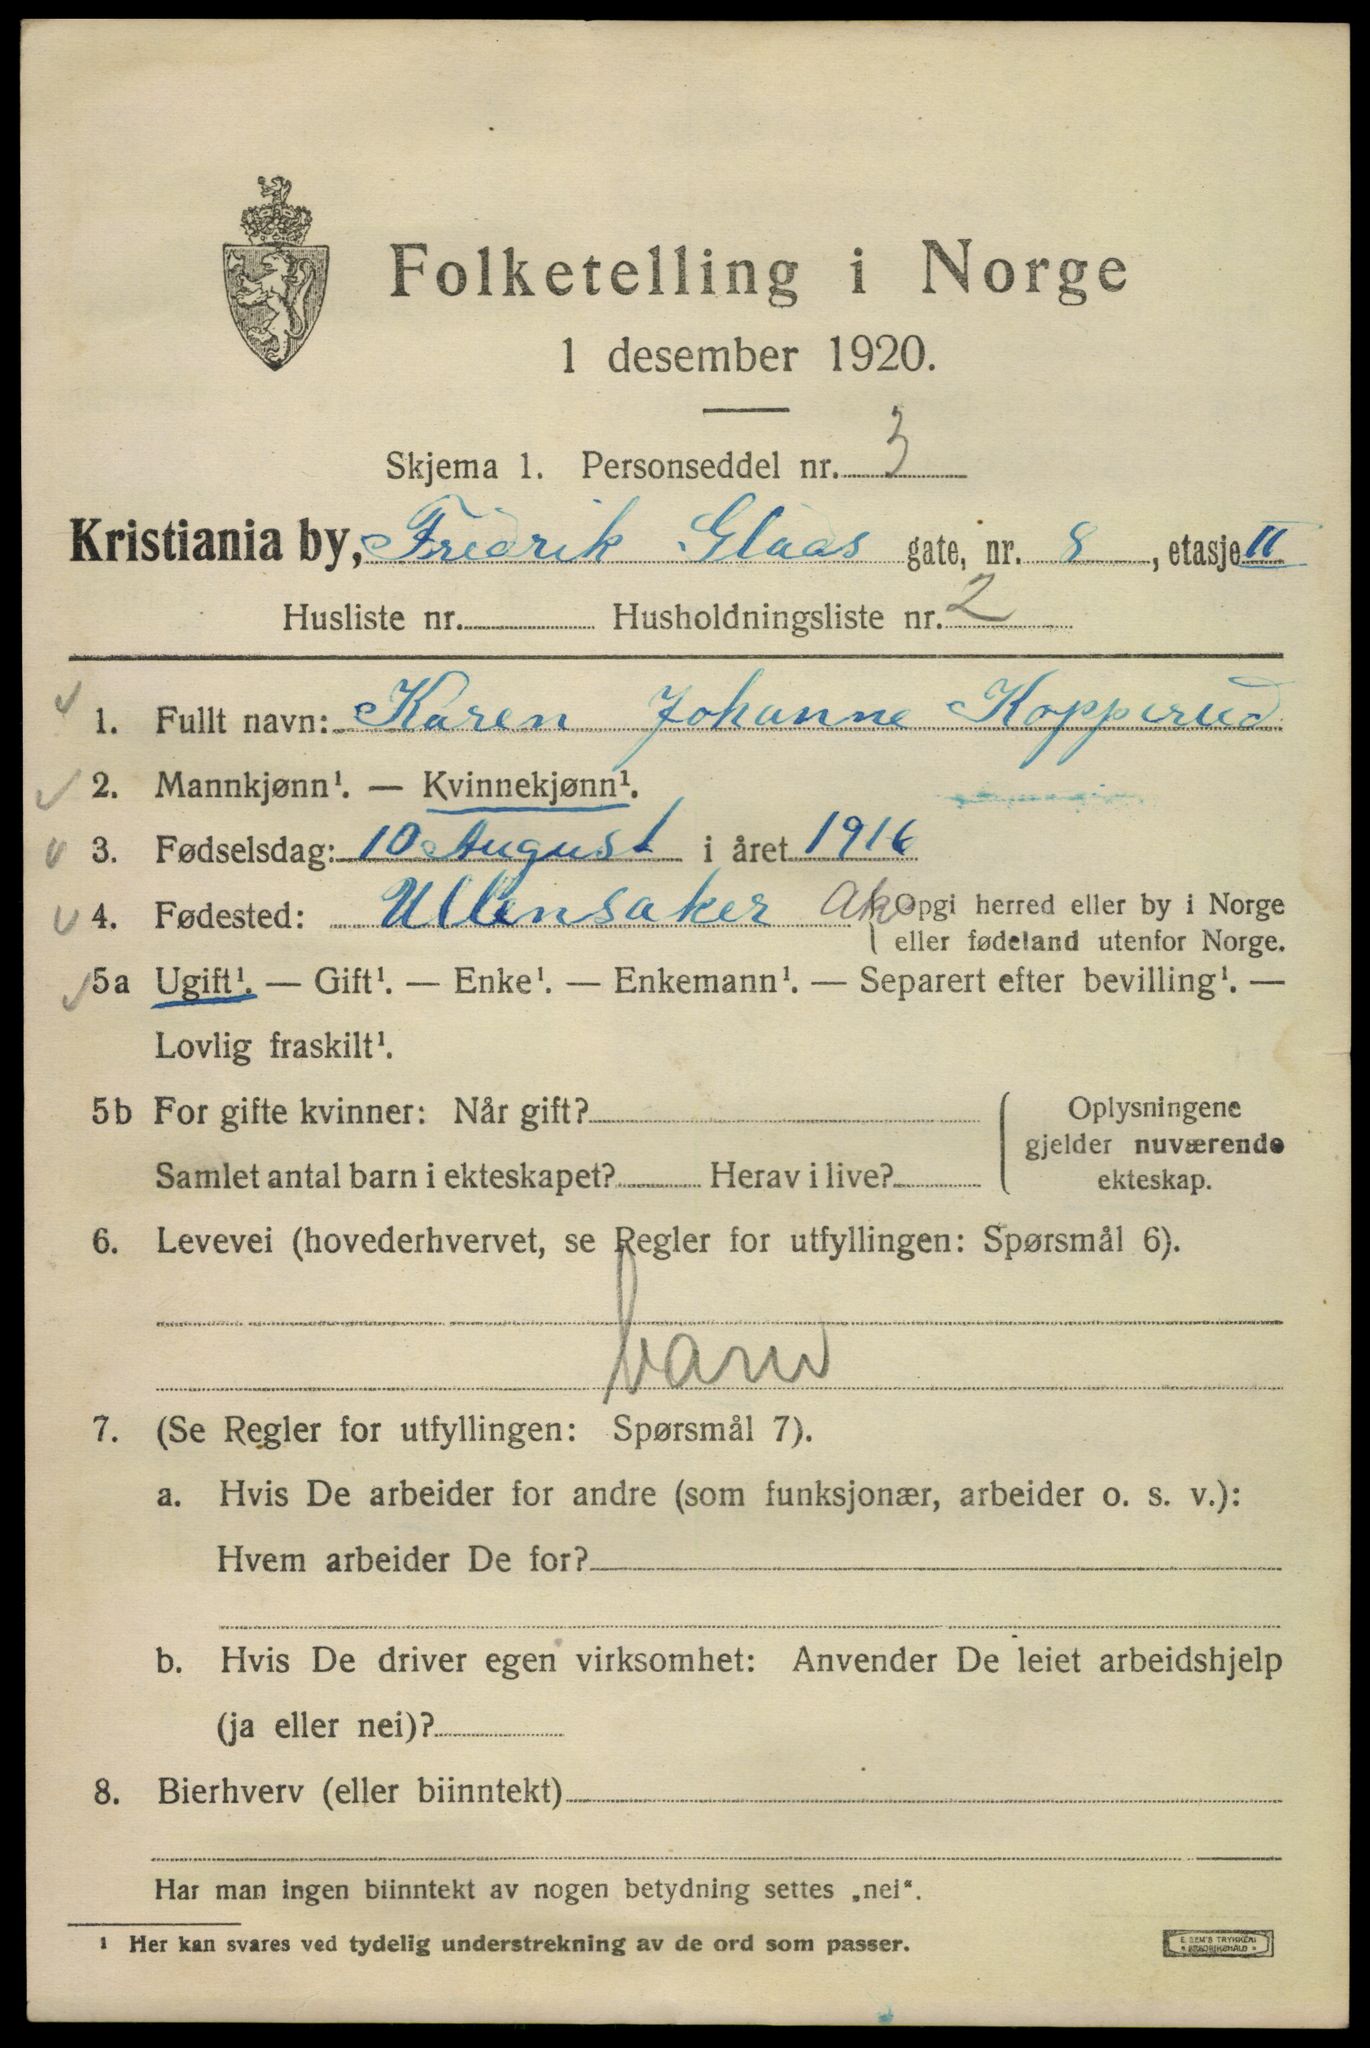 Folketelling i Norge
1 desember 1920.
Skjema 1. Personseddel nr. 3
Kristiania by, Fredrik Glads gate, nr. 8, etasje II
Husliste nr. Husholdningsliste nr. 2
1. Fullt navn: Karen Johanne Kopperud
2. Mannkjønn¹. — Kvinnekjønn¹.
3. Fødselsdag: 10 August i året 1916
4. Fødested: Ullensaker Ak. opgi herred eller by i Norge
eller fødeland utenfor Norge.
5a Ugift¹. — Gift¹. — Enke¹. — Enkemann¹. — Separert efter bevilling¹. —
Lovlig fraskilt¹.
5b For gifte kvinner: Når gift?
Samlet antal barn i ekteskapet? Herav i live?
Oplysningene
gjelder nuværende
ekteskap.
6. Levevei (hovederhvervet, se Regler for utfyllingen: Spørsmål 6).
barn
7. (Se Regler for utfyllingen: Spørsmål 7).
a. Hvis De arbeider for andre (som funksjonær, arbeider o. s. v.):
Hvem arbeider De for?
b. Hvis De driver egen virksomhet: Anvender De leiet arbeidshjelp
(ja eller nei)?
8. Bierhverv (eller biinntekt)
Har man ingen biinntekt av nogen betydning settes „nei“.
¹ Her kan svares ved tydelig understrekning av de ord som passer.
E. SEM'S TRYKKERI
FREDRIKSHALD